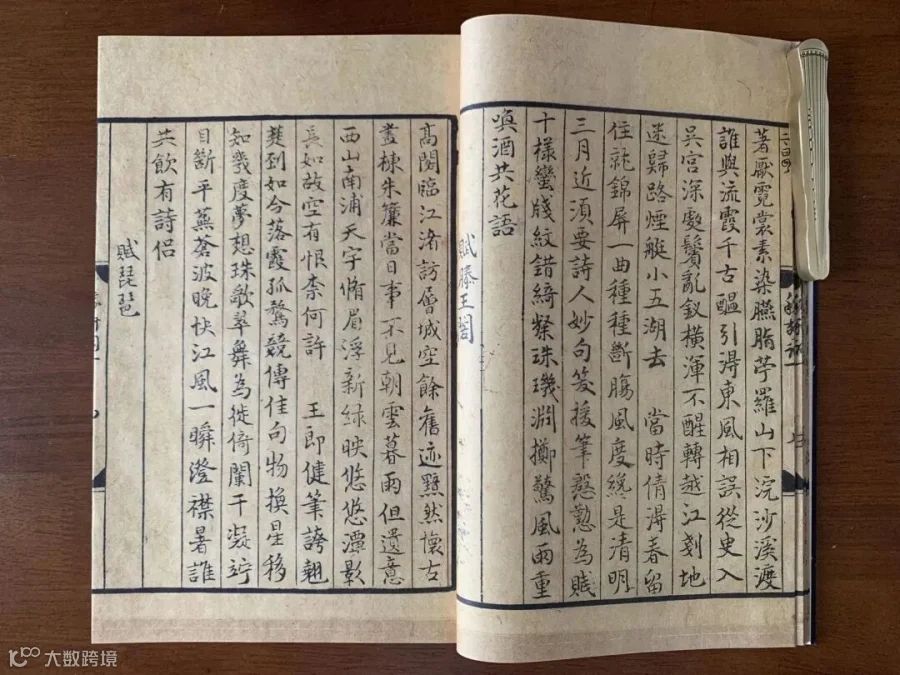 著厭霓裳素染臙脂苧羅山下浣沙溪渡
誰與流霞千古醖引得東風相誤從臾入
吳宮深處鬢亂釵橫渾不醒轉越江剗地
迷歸路煙艇小五湖去　當時倩得春留
住就錦屏一曲種種斷腸風度纔是清明
三月近須要詩人妙句笑援筆慇懃為賦
十樣蠻牋紋錯綺粲珠璣淵擲驚風雨重
喚酒共花語
賦滕王閣
高閣臨江渚訪層城空餘舊迹黯然懷古
畫棟朱簾當日事不見朝雲暮雨但遺意
西山南浦天宇脩眉浮新綠映悠悠潭影
長如故空有恨奈何許　王郎健筆誇翹
楚到如今落霞孤鶩競傳佳句物換星移
知幾度夢想珠歌翠舞為徙倚闌干凝竚
目斷平蕪蒼波晚快江風一瞬澄襟暑誰
共飲有詩侶
賦琵琶
大数跨境